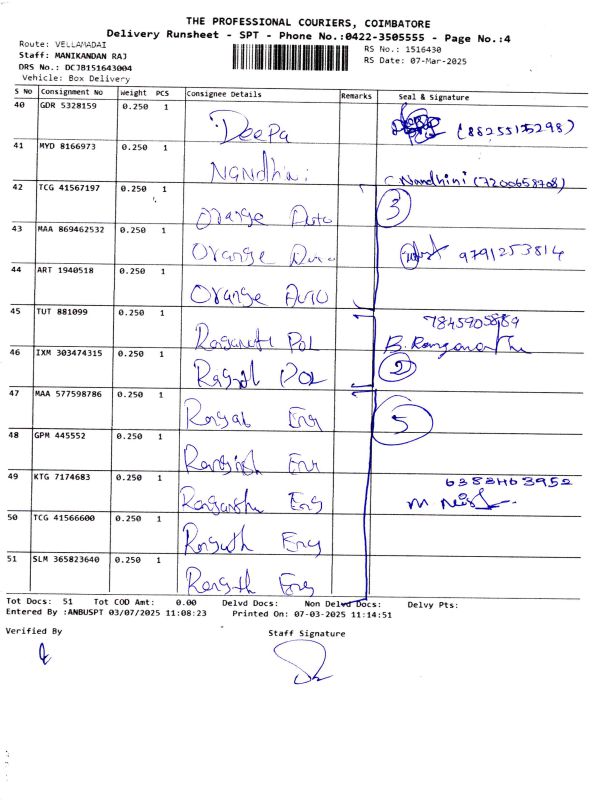 THE PROFESSIONAL COURIERS, COIMBATORE
Delivery Runsheet - SPT - Phone No.:0422-3505555 - Page No.:4
Route: VELLAMADAI
RS No.: 1516430
Staff: MANIKANDAN RAJ
RS Date: 07-Mar-2025
DRS No.: DCJB151643004
Vehicle: Box Delivery
S No Consignment No Weight PCS Consignee Details Remarks Seal & Signature
40 GDR 5328159 0.250 1 Deepa (8825515298)
41 MYD 8166973 0.250 1 Nandhini Nandhini (7200658708)
42 TCG 41567197 0.250 1 Orange Auto 3
43 MAA 869462532 0.250 1 Orange Auto 9791253814
44 ART 1940518 0.250 1 Orange Auto
45 TUT 881099 0.250 1 Pol 7845905889
B. Ranganatha
46 IXM 303474315 0.250 1 Pol 2
47 MAA 577598786 0.250 1 Eng 5
48 GPM 445552 0.250 1 Eng
49 KTG 7174683 0.250 1 Eng 6383463952
50 TCG 41566600 0.250 1 Eng
51 SLM 365823640 0.250 1 Eng
Tot Docs: 51 Tot COD Amt: 0.00 Delvd Docs: Non Delvd Docs: Delvy Pts:
Entered By :ANBUSPT 03/07/2025 11:08:23 Printed On: 07-03-2025 11:14:51
Verified By Staff Signature